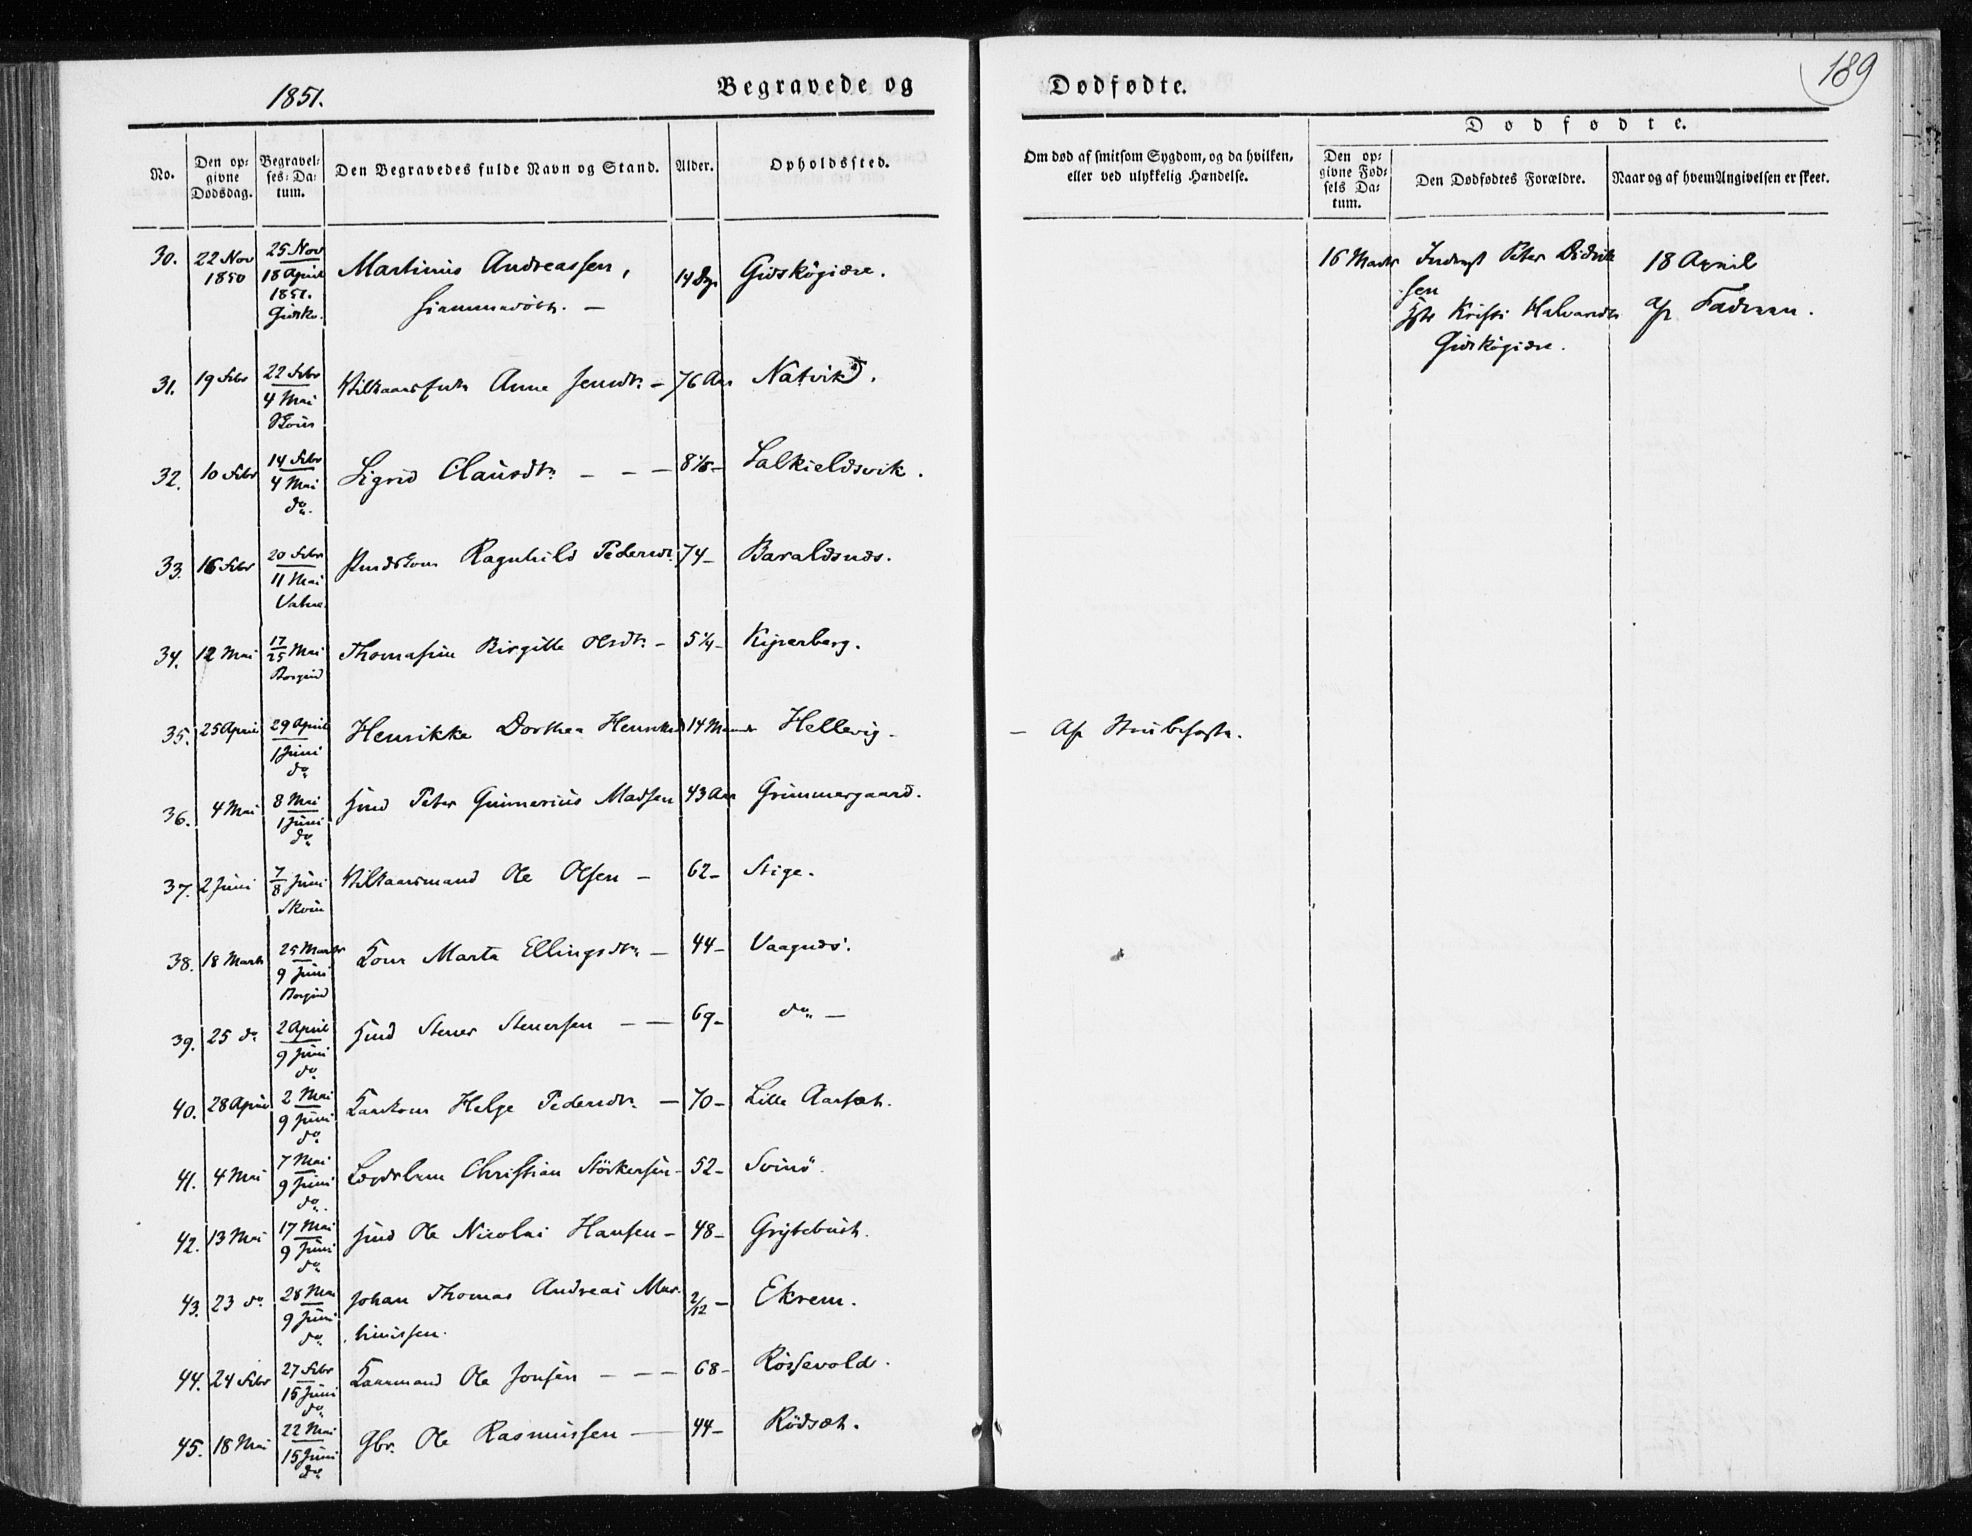 1851.
Begravede og
Dødfødte.
189
No.
Den op-
givne
Dødsdag.
Begravel-
ses-Da-
tum.
Den Begravedes fulde Navn og Stand.
Alder.
Opholdssted.
Om død af smitsom Sygdom, og da hvilken,
eller ved ulykkelig Hændelse.
Dødfødte.
Den op-
givne Fød-
sels Da-
tum.
Den Dødfødtes Forældre.
Naar og af hvem Angivelsen er skeet.
30. 22 Nov 1850 25 Nov
18 April
1851.
Martinus Andreassen,
hjemmedöbt. —
14 Dge
Gidskögjære.
16 Marts
Peter Didrik
sen
Kristi Halvardtr
Gidskögjære.
18 April
af Faderen.
31. 19 Febr 22 Febr
4 Mai
Anne Jensdtr — 76 Aar Natvik.
32. 10 Febr 14 Febr
4 Mai
do.
Sigrid Clausdtr — — — 8 1/5 —
33. 16 Febr 20 Febr
11 Mai
Vatne
Ragnhild Pedersdtr 74 — Baraldsnæs.
34. 12 Mai 17/25 Mai
Borgund
Thomasine Birgitte Olsdtr — 5 1/4 — Kiperberg.
35. 25 April 29 April
1 Juni
do
Henrikke Dorthea 14 Maaneder Hellevig —
— Af Strubehoste.
36. 4 Mai 8 Mai
1 Juni
do
Hmd Peter Gunnerius Madsen 43 Aar Grimmergaard.
37. 2 Juni 7/8 Juni
Skoue
Vilkaarsmand Ole Olsen — 62 — Stige.
38. 18 Marts 25 Marts
9 Juni
Borgund
Kone Marte Ellingsdtr — 44 — Vaagnæs.
39. 25 do 2 April
9 Juni
do
Hmd Stener Stenersen — — 69 — do —
40. 28 April 2 Mai
9 Juni
do
Helge Pedersdtr — 70 — Lille Aarsæt.
41. 4 Mai 7 Mai
9 Juni
do.
Lægdslem Christian Störkersen — 52 — Svinö.
42. 13 Mai 17 Mai
9 Juni
do
Hmd Ole Nicolai Hansen — 48 — Grytebust.
43. 23 do 28 Mai
9 Juni
do
Johan Thomas Andreas Mar-
tinussen.
2/12 — Ekrem.
44. 24 Febr 27 Febr
15 Juni
do
Kaarmand Ole Jonsen — — — 68 — Rössevold.
45. 18 Mai 22 Mai
15 Juni
do
Gbr. Ole Rasmussen — 44 — Rödsæt.